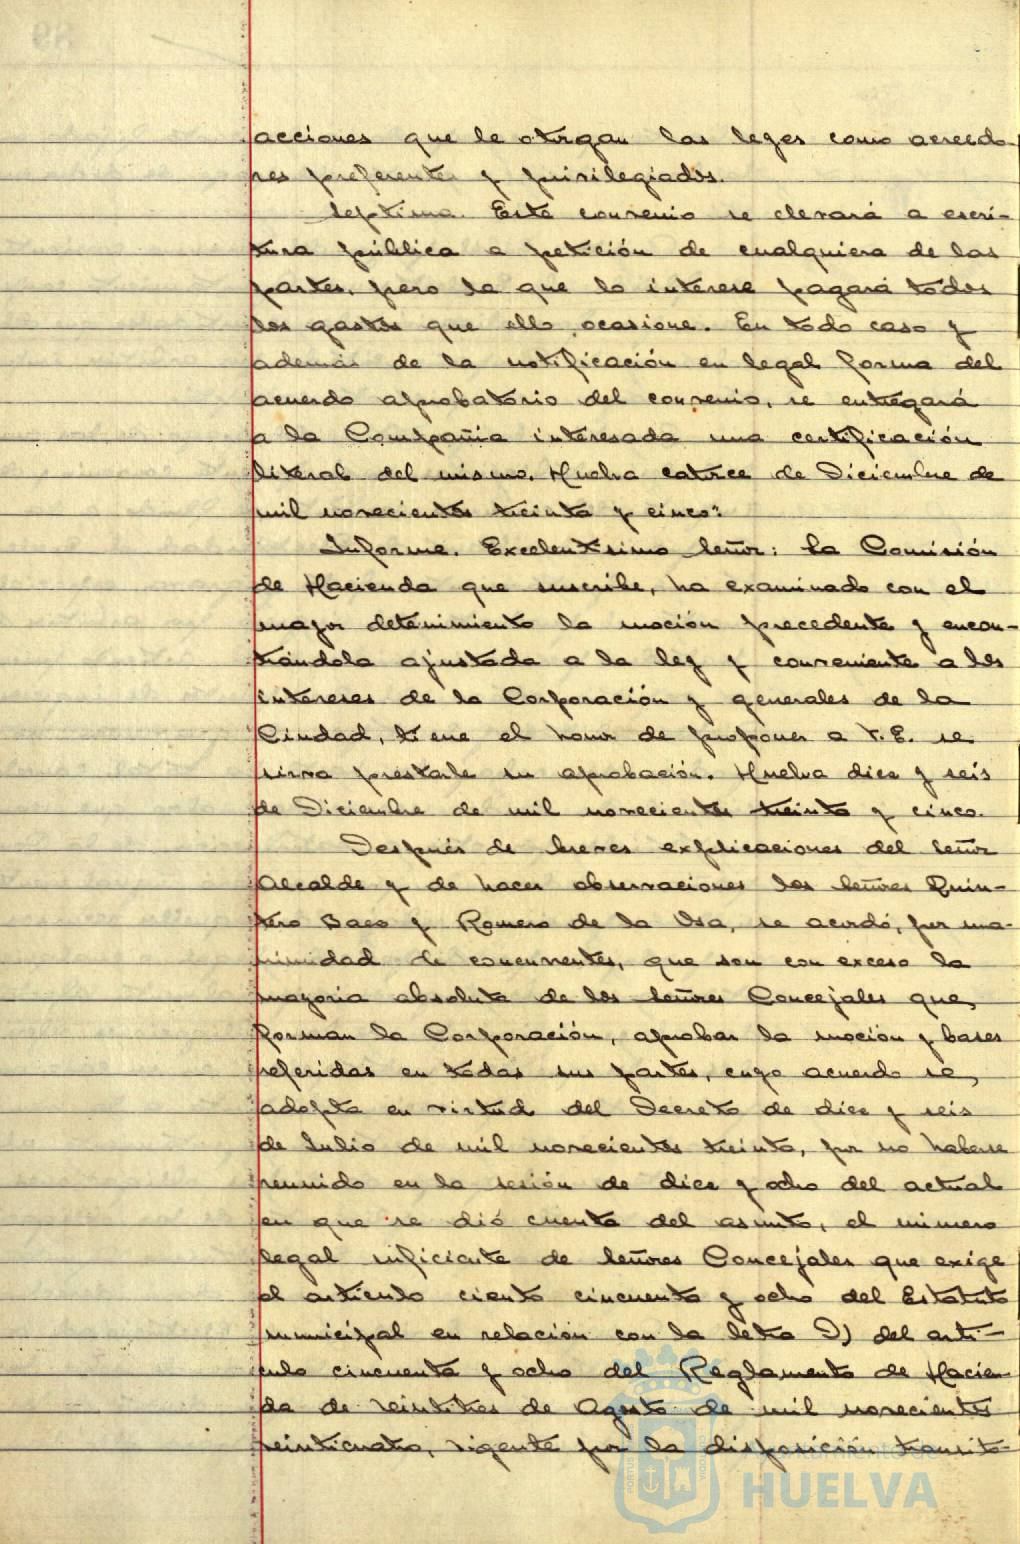 acciones que le otorgan las leyes como acreedo-
res preferentes y privilegiados.
Septima. Este convenio se elevará a escri-
tura pública a petición de cualquiera de las
partes, pero la que lo interese pagará todos
los gastos que ello ocasione. En todo caso y
además de la notificación en legal forma del
acuerdo aprobatorio del convenio, se entregará
a la Compañia interesada una certificación
literal del mismo. Huelva catorce de Diciembre de
mil novecientos treinta y cinco:
Informe. Excelentísimo Señor: La Comisión
de Hacienda que suscribe, ha examinado con el
mayor detenimiento la moción precedente y encon-
trándola ajustada a la ley y conveniente a los
intereses de la Corporación y generales de la
Ciudad, tiene el honor de proponer a V.E. se
sirva prestarle su aprobación. Huelva diez y seis
de Diciembre de mil novecientos treinta y cinco.
Después de breves explicaciones del Señor
Alcalde y de hacer observaciones los Señores Quin-
tero Baez y Romero de la Osa, se acordó, por una-
nimidad de concurrentes, que son con exceso la
mayoría absoluta de los Señores Concejales que
forman la Corporación, aprobar la moción y bases
referidas en todas sus partes, cuyo acuerdo se
adopta en virtud del Decreto de diez y seis
de Julio de mil novecientos treinta, por no haberse
reunido en la sesión de diez y ocho del actual
en que se dió cuenta del asunto, el número
legal suficiente de Señores Concejales que exige
el artículo ciento cincuenta y ocho del Estatuto
municipal en relación con la letra D) del artí-
culo cincuenta y ocho del Reglamento de Hacien-
da de veintitres de Agosto de mil novecientos
veinticuatro, vigente por la disposición transito-
Ayuntamiento de
HUELVA